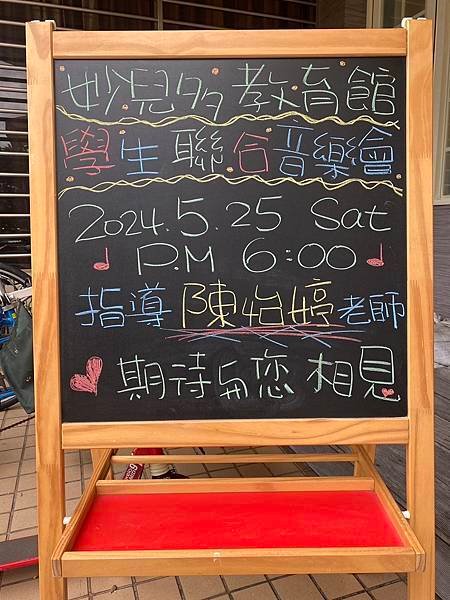 妙兒多教育館
學生聯合音樂會
2024.5.25 Sat
P.M 6:00
指導 陳怡婷老師
期待與您相見